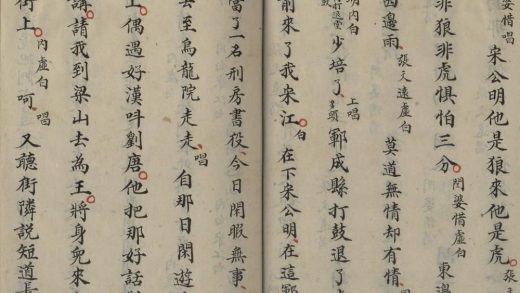 婆惜唱 宋公明他是狼來他是虎 張文
非狼非虎惧怕三分 閆婆惜虛白 東邊
西邊雨 張文遠虛白 莫道無情却有情
明内白 少培了 上唱 鄆成縣打鼓退了
前來了我宋江 白 在下宋公明在這鄆
當了一名刑房書役今日閑暇無事
去至烏龍院走走 唱 自那日閑遊
上偶遇好漢叫劉唐他把那好話
講請我到梁山去為王將身兒來
街上 内虛白 呵 唱 又聽街隣說短道長